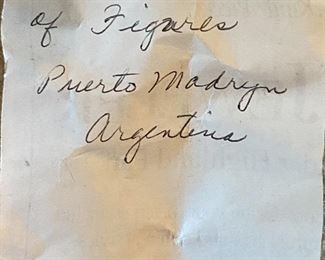 of Figures
Puerto Madryn
Argentina